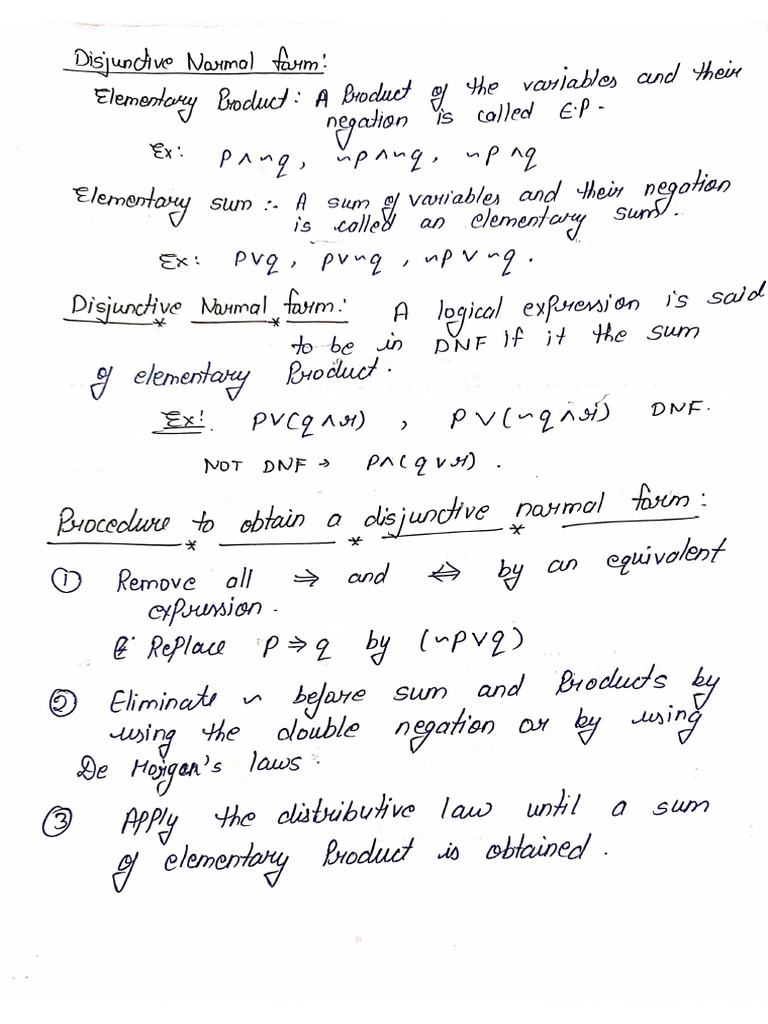 Disjunctive Normal form:
Elementary Product: A Product of the variables and their
negation is called E.P.
Ex: P∧~q, ~P∧~q, ~P∧q
Elementary sum :- A sum of variables and their negation
is called an elementary sum.
Ex: P∨q, P∨~q, ~P∨~q.
Disjunctive Normal form: A logical expression is said
to be in DNF if it the sum
of elementary Product.
Ex: P∨(q∧r), P∨(~q∧r) DNF.
NOT DNF → P∧(q∨r).
Procedure to obtain a disjunctive normal form:
① Remove all ⇒ and ⇔ by an equivalent
expression.
Replace P⇒q by (~P∨q)
② Eliminate ~ before sum and Products by
using the double negation or by using
De Morgan's laws.
③ Apply the distributive law until a sum
of elementary Product is obtained.